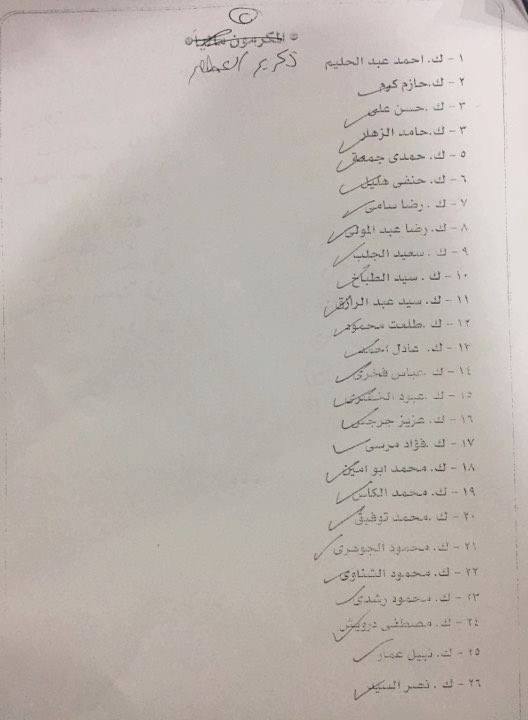 ٢
* المكرمون سابقاً *
تكريم العطاء
١ - ك. احمد عبد الحليم
٢ - ك. حازم كرم
٣ - ك. حسن على
٣ - ك. حامد الزهار
٥ - ك. حمدى جمعة
٦ - ك. حنفى هليل
٧ - ك. رضا سامى
٨ - ك. رضا عبد المولى
٩ - ك. سعيد الجلب
١٠ - ك. سيد الطباخ
١١ - ك. سيد عبد الرازق
١٢ - ك. طلعت محمود
١٣ - ك. عادل احمد
١٤ - ك. عباس فخرى
١٥ - ك. عبود الخضرى
١٦ - ك. عزيز جرجس
١٧ - ك. فؤاد مرسى
١٨ - ك. محمد ابو امين
١٩ - ك. محمد الكاس
٢٠ - ك. محمد توفيق
٢١ - ك. محمود الجوهرى
٢٢ - ك. محمود الشناوى
٢٣ - ك. محمود رشدى
٢٤ - ك. مصطفى درويش
٢٥ - ك. نبيل عمار
٢٦ - ك. نصر السيد